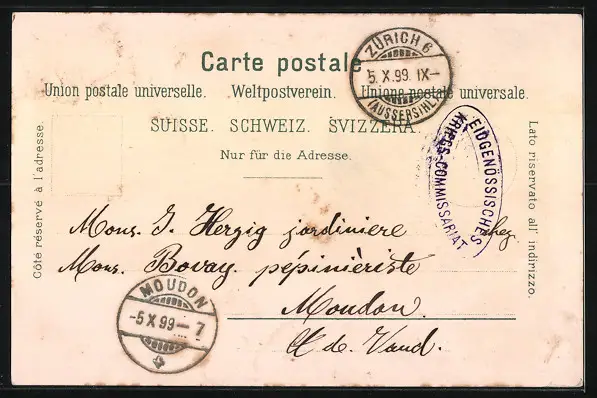 Carte postale
Union postale universelle. Weltpostverein. Unione postale universale.
SUISSE. SCHWEIZ. SVIZZERA.
Nur für die Adresse.
Côté réservé à l'adresse.
Lato riservato all' indirizzo.
ZÜRICH 6
5. X. 99. IX–
(AUSSERSIHL)
EIDGENÖSSISCHES
KRIEGS-COMMISSARIAT
Mons. J. Herzig jardiniere chez
Mons. Bovay. pépinièriste
Moudon.
Ct de. Vaud.
MOUDON
-5 X 99- 7